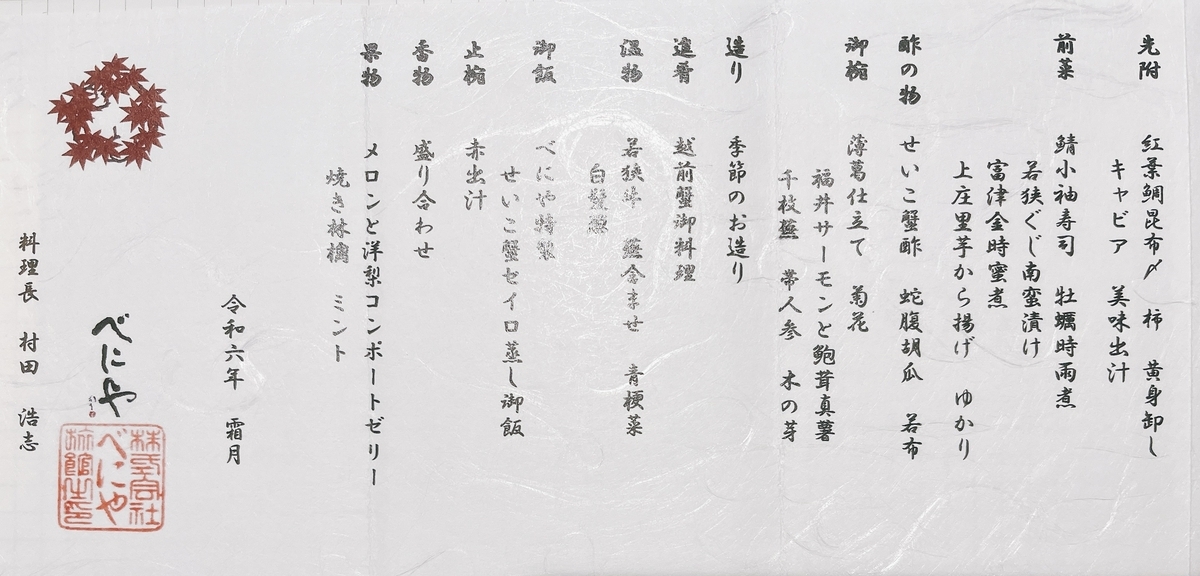 先附　紅葉鯛昆布〆　柿　黄身卸し
キャビア　美味出汁
前菜　鯖小袖寿司　牡蠣時雨煮
若狭ぐじ南蛮漬け
富津金時蜜煮
上庄里芋から揚げ　ゆかり
酢の物　せいこ蟹酢　蛇腹胡瓜　若布
御椀　薄葛仕立て　菊花
福井サーモンと鮑茸真薯
千枝蕪　帯人参　木の芽
造り　季節のお造り
進肴　越前蟹御料理
温物　若狭牛　蕪含ませ　青梗菜
白髪葱
御飯　べにや特製
せいこ蟹セイロ蒸し御飯
止椀　赤出汁
香物　盛り合わせ
果物　メロンと洋梨コンポートゼリー
焼き林檎　ミント
令和六年　霜月
べにや
株式会社
べにや
旅館之印
料理長　村田　浩志